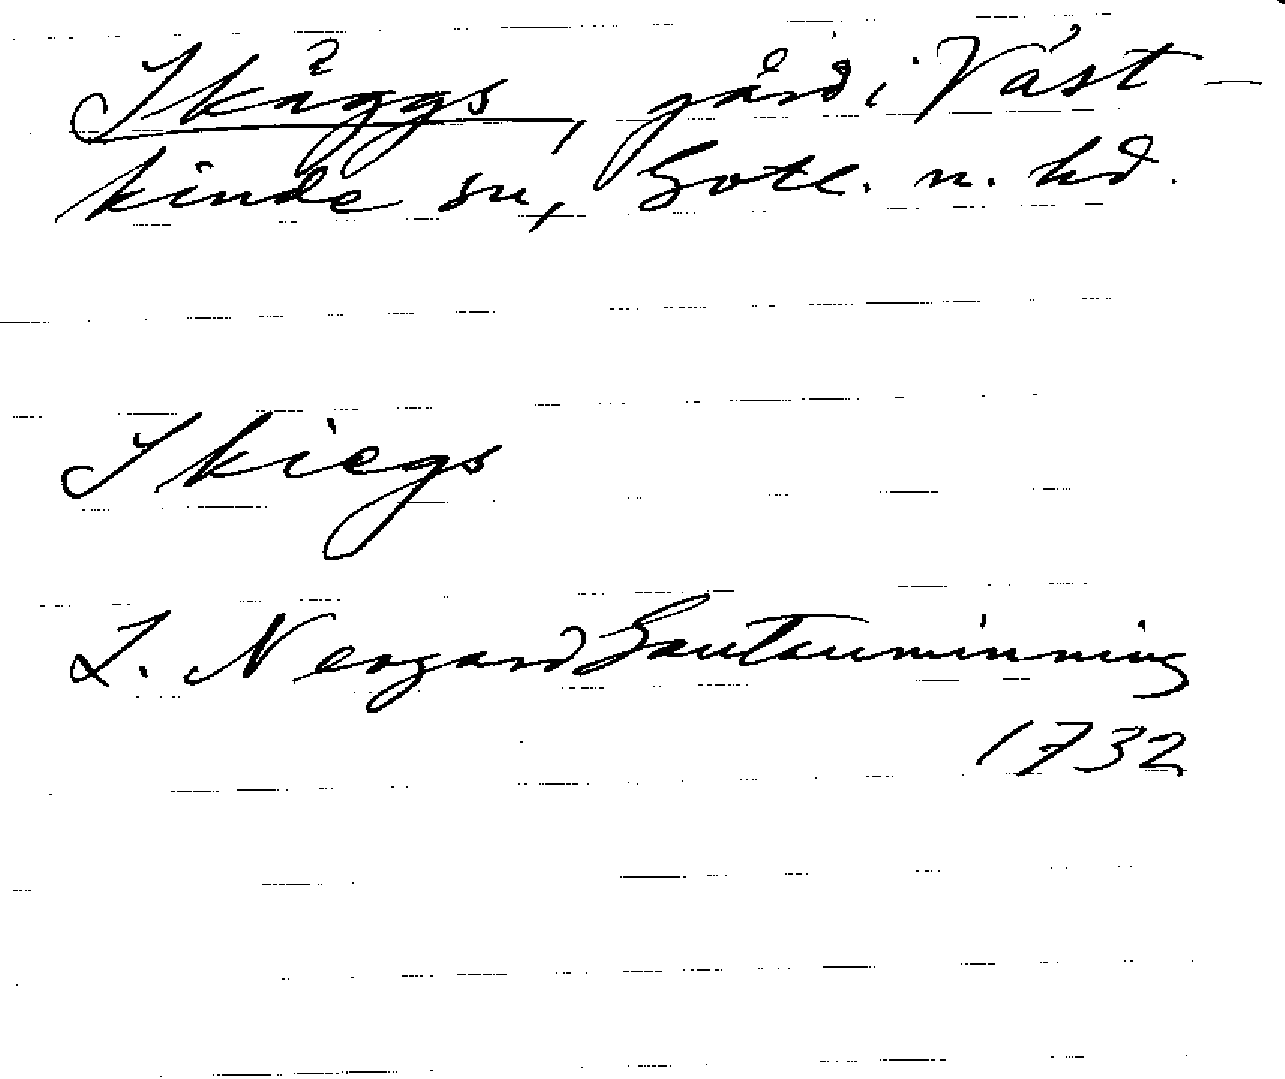 Skäggs, gård i Väst-
kinde sn, Gotl. n. hd.
Skiegs
L. Neogard Gautauminning
1732